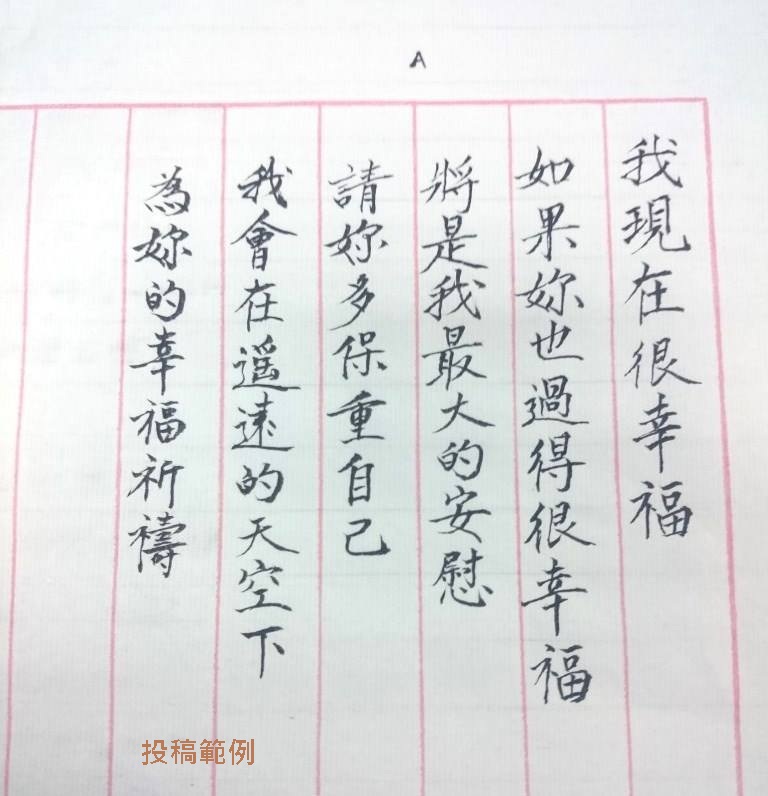 A
我現在很幸福
如果妳也過得很幸福
將是我最大的安慰
請妳多保重自己
我會在遙遠的天空下
為妳的幸福祈禱
投稿範例